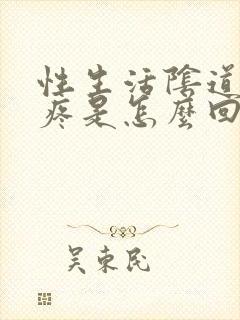 性生活陰道
疼是怎麼回
吴東民